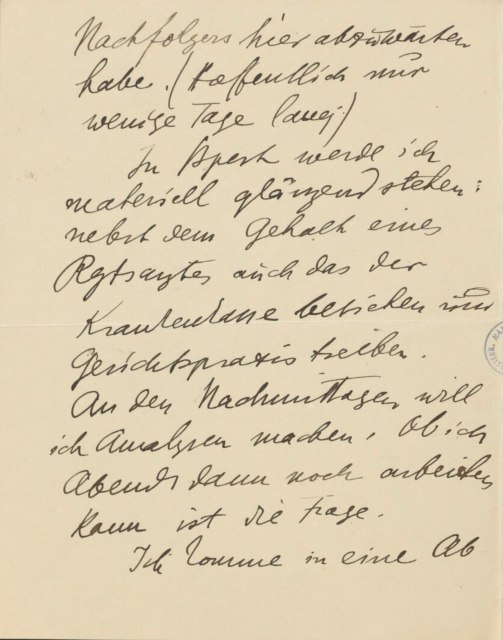 Nachfolgers hier abzuwarten
habe. (Hoffentlich nur
wenige Tage lang)
In Bpest werde ich
materiell glänzend stehen:
nebst dem Gehalt eines
Rgtsarztes auch das der
Krankenkasse beziehen und
Gerichtspraxis treiben.
An den Nachmittagen will
ich Analysen machen. Ob ich
Abends dann noch arbeiten
kann ist die Frage.
Ich komme in eine Ab